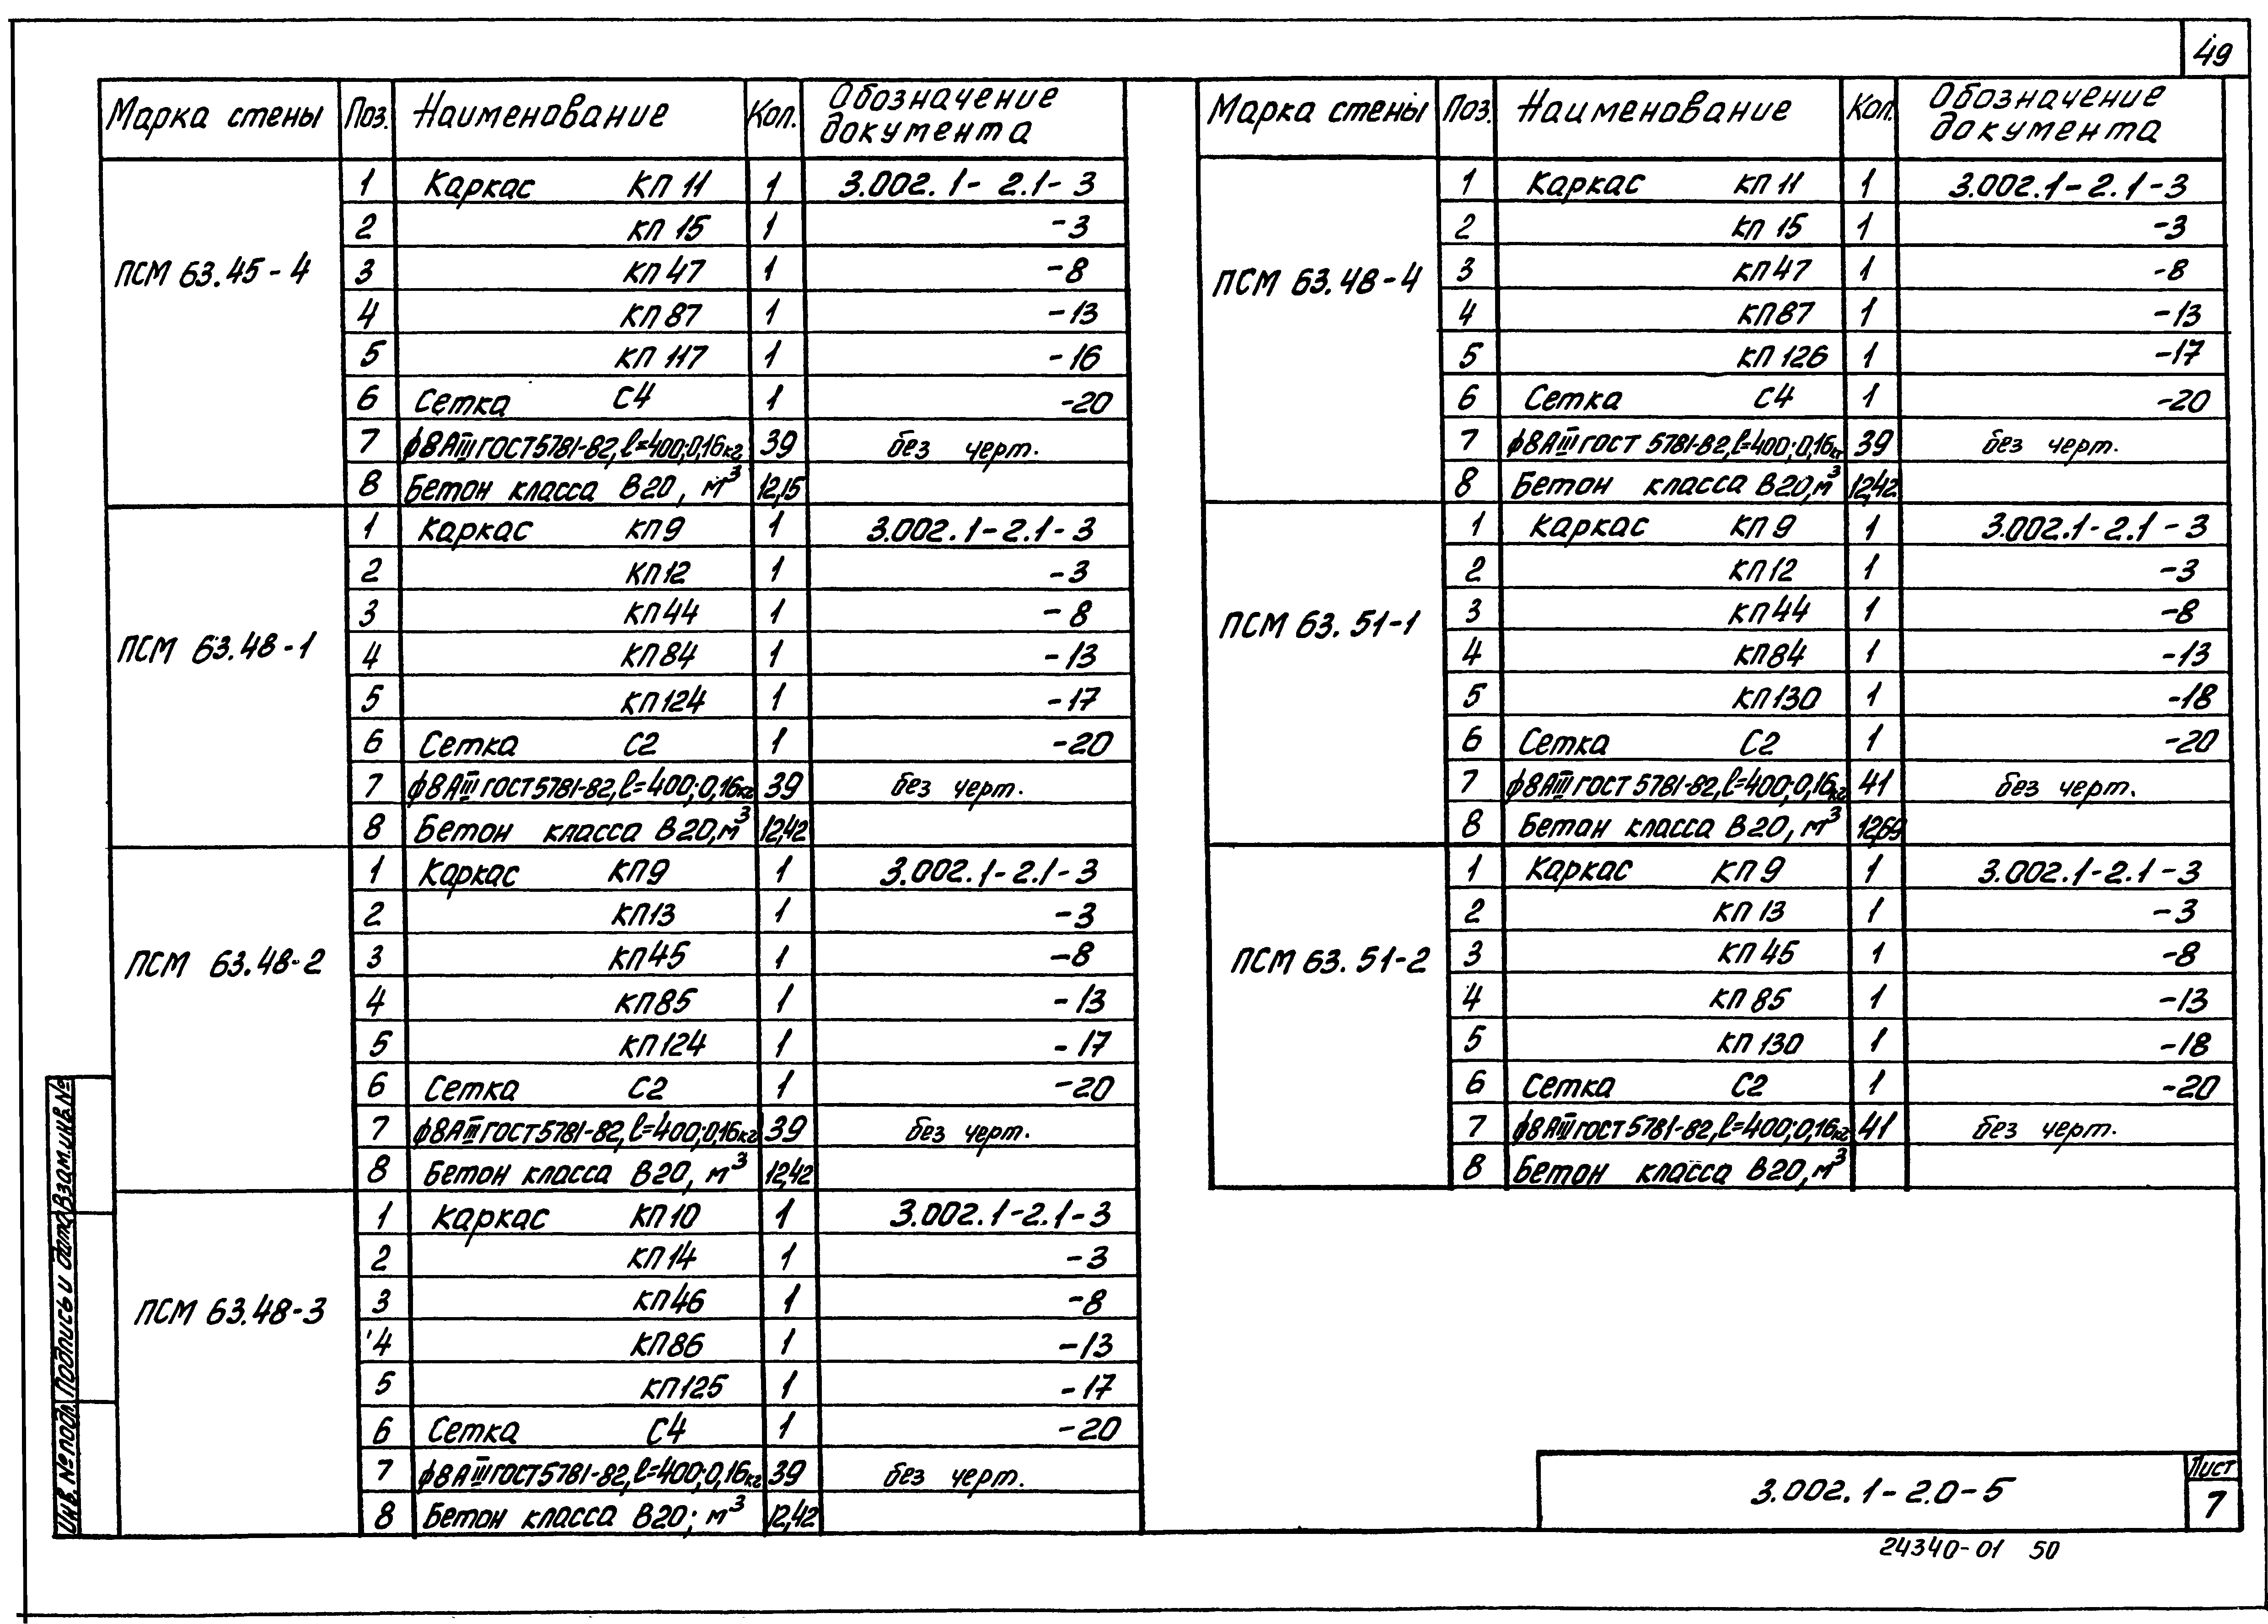 49
Марка стены Поз. Наименование Кол. Обозначение документа
ПСМ 63.45-4
1 Каркас КП 11 1 3.002.1-2.1-3
2 КП 15 1 -3
3 КП 47 1 -8
4 КП 87 1 -13
5 КП 117 1 -16
6 Сетка С4 1 -20
7 ф8АIII ГОСТ 5781-82, ℓ=400; 0,16кг 39 без черт.
8 Бетон класса В20, м³ 12,15
ПСМ 63.48-1
1 Каркас КП 9 1 3.002.1-2.1-3
2 КП 12 1 -3
3 КП 44 1 -8
4 КП 84 1 -13
5 КП 124 1 -17
6 Сетка С2 1 -20
7 ф8АIII ГОСТ 5781-82, ℓ=400; 0,16кг 39 без черт.
8 Бетон класса В20, м³ 12,42
ПСМ 63.48-2
1 Каркас КП9 1 3.002.1-2.1-3
2 КП13 1 -3
3 КП45 1 -8
4 КП85 1 -13
5 КП124 1 -17
6 Сетка С2 1 -20
7 ф8АIII ГОСТ 5781-82, ℓ=400; 0,16кг 39 без черт.
8 Бетон класса В20, м³ 12,42
ПСМ 63.48-3
1 Каркас КП10 1 3.002.1-2.1-3
2 КП14 1 -3
3 КП46 1 -8
4 КП86 1 -13
5 КП125 1 -17
6 Сетка С4 1 -20
7 ф8АIII ГОСТ 5781-82, ℓ=400; 0,16кг 39 без черт.
8 Бетон класса В20; м³ 12,42
Марка стены Поз. Наименование Кол. Обозначение документа
ПСМ 63.48-4
1 Каркас КП 11 1 3.002.1-2.1-3
2 КП 15 1 -3
3 КП47 1 -8
4 КП87 1 -13
5 КП 126 1 -17
6 Сетка С4 1 -20
7 ф8АIII ГОСТ 5781-82, ℓ=400; 0,16кг 39 без черт.
8 Бетон класса В20, м³ 12,42
ПСМ 63.51-1
1 Каркас КП 9 1 3.002.1-2.1-3
2 КП12 1 -3
3 КП44 1 -8
4 КП84 1 -13
5 КП130 1 -18
6 Сетка С2 1 -20
7 ф8АIII ГОСТ 5781-82, ℓ=400; 0,16кг 41 без черт.
8 Бетон класса В20, м³ 12,69
ПСМ 63.51-2
1 Каркас КП 9 1 3.002.1-2.1-3
2 КП 13 1 -3
3 КП 45 1 -8
4 КП 85 1 -13
5 КП 130 1 -18
6 Сетка С2 1 -20
7 ф8АIII ГОСТ 5781-82, ℓ=400; 0,16кг 41 без черт.
8 Бетон класса В20, м³
Взам.инв.№
Подпись и дата
Инв.№подл.
3.002.1-2.0-5
Лист
7
24340-01 50